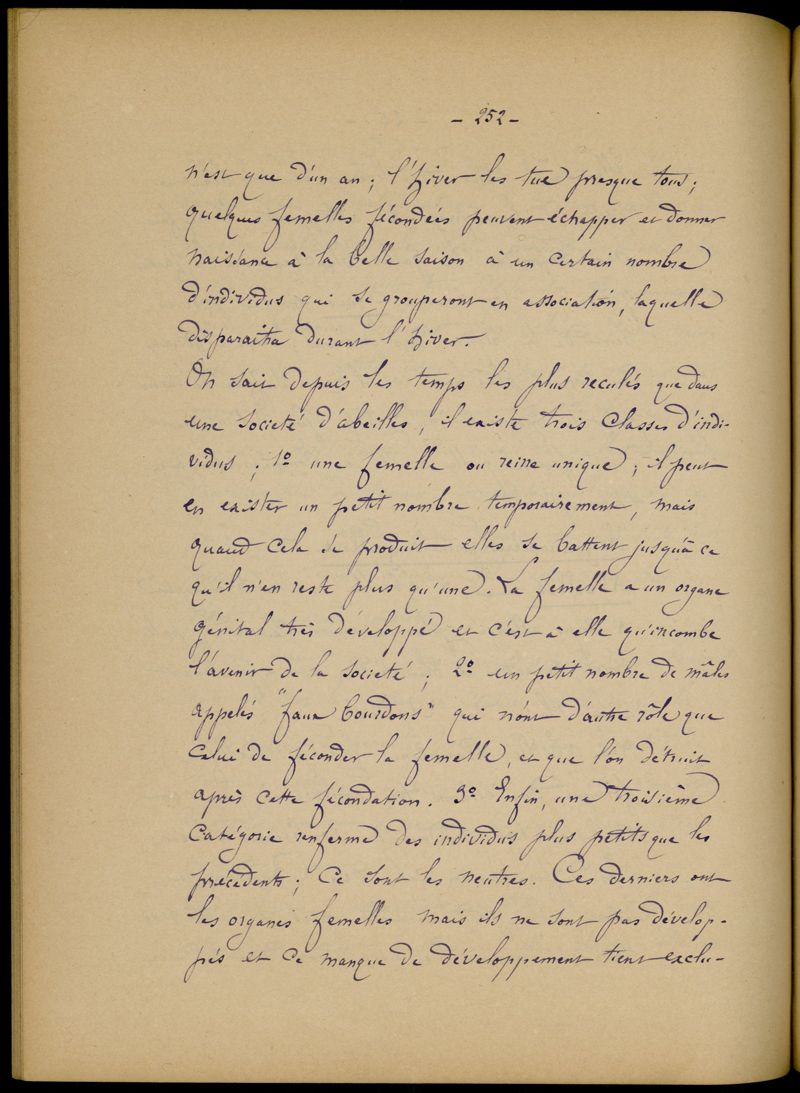 - 252 -
n'est que d'un an ; l'hiver les tue presque tous ;
quelques femelles fécondées peuvent échapper et donner
naissance à la belle saison à un certain nombre
d'individus qui se grouperont en association, laquelle
disparaitra durant l'hiver.
On sait depuis les temps les plus reculés que dans
une societé d'abeilles, il existe trois classes d'indi-
vidus ; 1º une femelle ou reine unique ; il peut
en exister un petit nombre temporairement, mais
quand cela se produit elles se battent jusqu'à ce
qu'il n'en reste plus qu'une. La femelle a un organe
génital très développé et c'est à elle qu'incombe
l'avenir de la societé ; 2º un petit nombre de mâles
appelés "faux bourdons" qui n'ont d'autre rôle que
celui de féconder la femelle, et que l'on détruit
après cette fécondation. 3º Enfin, une troisième
catégorie renferme des individus plus petits que les
précédents ; ce sont les neutres. Ces derniers ont
les organes femelles mais ils ne sont pas dévelop-
pés et ce manque de développement tient exclu-